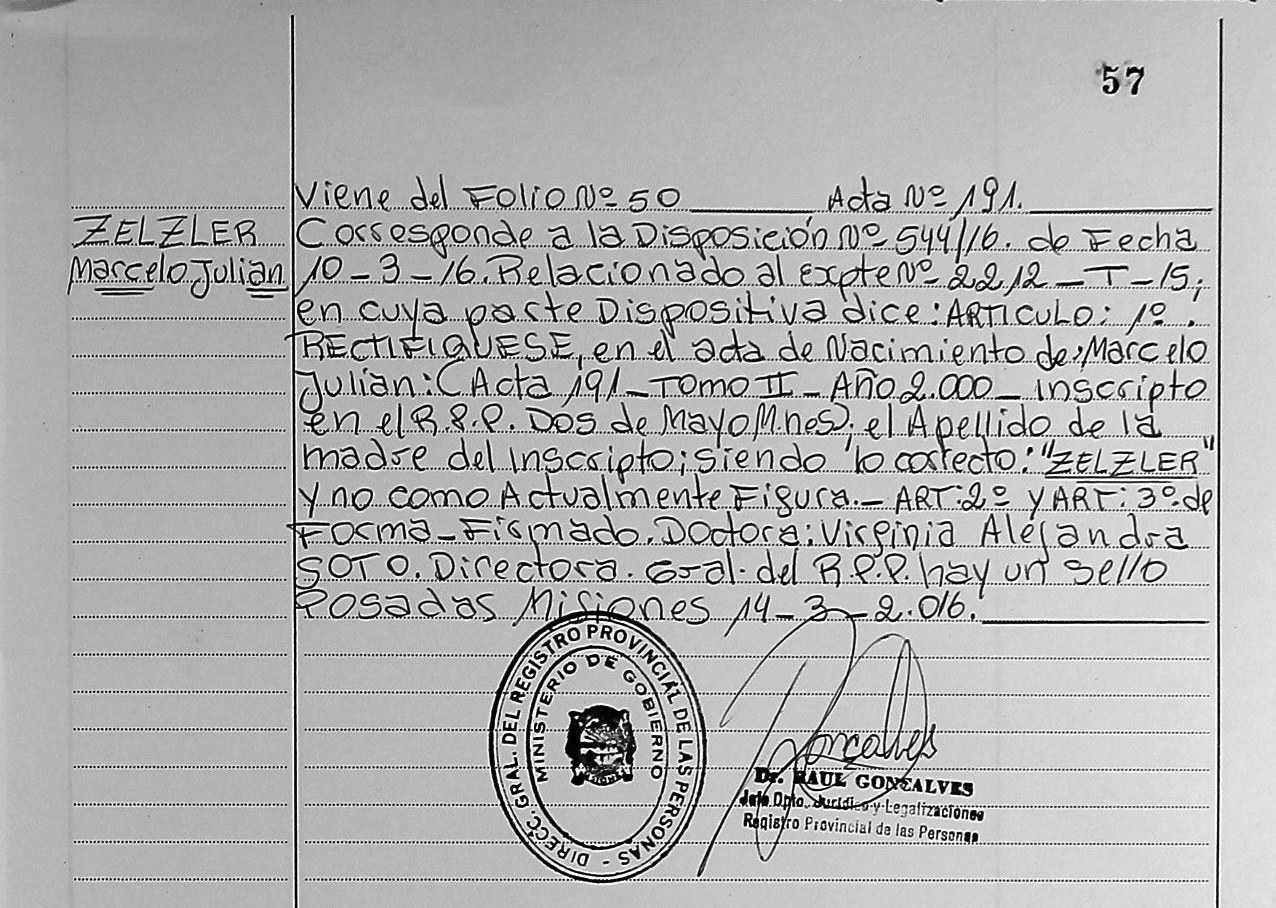 57
Viene del Folio Nº 50 Acta Nº 191.
ZELZLER
Marcelo Julián
Corresponde a la Disposición Nº 544/16. de Fecha
10-3-16. Relacionado al expte Nº 2212-T-15;
en cuya parte Dispositiva dice: ARTICULO: 1º.
RECTIFIQUESE, en el acta de Nacimiento de; Marcelo
Julián: (Acta 191-Tomo II-Año 2.000- inscripto
en el R.P.P. Dos de Mayo Mnes); el Apellido de la
madre del inscripto; siendo lo correcto: "ZELZLER"
y no como Actualmente Figura.- ART: 2º y ART: 3º. de
Forma-Firmado. Doctora: Virginia Alejandra
SOTO. Directora. Gral. del R.P.P. hay un sello
Posadas Misiones 14-3-2.016.
DIRECC. GRAL. DEL REGISTRO PROVINCIAL DE LAS PERSONAS -
MINISTERIO DE GOBIERNO
Goncalves
Dr. RAUL GONCALVES
Jefe Dpto. Jurídico y Legalizaciones
Registro Provincial de las Personas